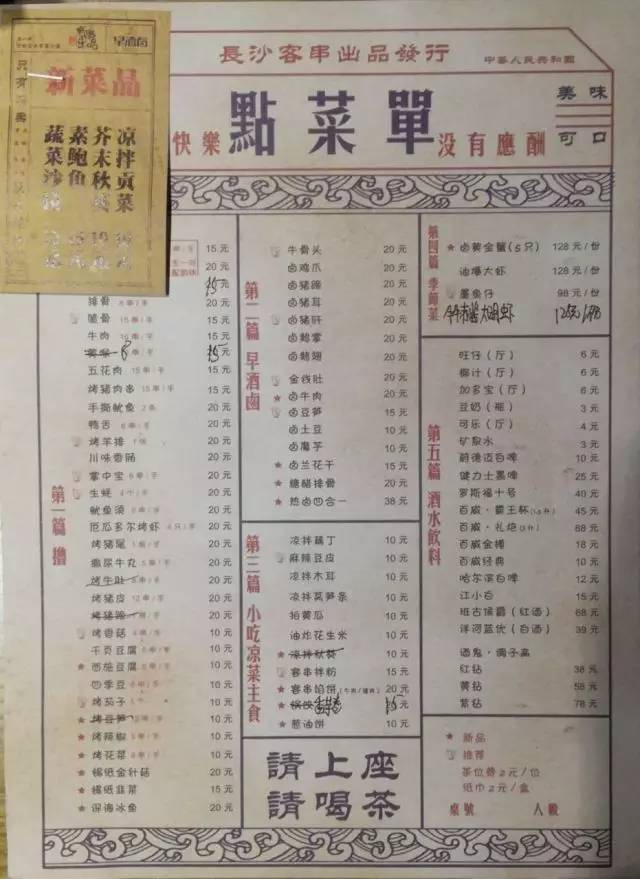 長沙客串出品發行
中華人民共和國
點菜單
快樂
没有應酬
美味
可口
早酒卤
新菜品
凉拌贡菜
芥末秋
素鲍鱼
蔬菜沙
第一篇 撸
15元
20元
排骨 20元
脆骨 15串/手 20元
牛肉 20元
五花肉 15串/手 20元
烤猪肉串 15串/手 20元
手撕鱿鱼 20元
鸭舌 20元
烤羊排 20元
川味香肠 20元
掌中宝 20元
生蚝 20元
鱿鱼须 20元
厄瓜多尔烤虾 20元
烤猪尾 20元
撒尿牛丸 20元
烤牛肚 20元
烤猪皮 20元
烤猪蹄 20元
烤香菇 10元
千页豆腐 10元
★ 西施豆腐 10元
四季豆 10元
烤茄子 10元
★ 烤豆笋 10元
★ 烤辣椒 10元
★ 烤花菜 10元
★ 锡纸金针菇 20元
★ 锡纸韭菜 15元
★ 深海冰鱼 20元
第二篇 早酒卤
牛骨头 20元
卤鸡爪 20元
卤猪蹄 20元
卤猪耳 20元
卤猪肝 20元
卤鸭掌 20元
卤鸭翅 20元
金线肚 20元
★ 卤牛肉 20元
卤豆笋 15元
卤土豆 10元
卤魔芋 10元
★ 卤兰花干 15元
★ 糖醋排骨 20元
★ 热卤四合一 38元
第三篇 小吃凉菜主食
凉拌藕丁 10元
麻辣豆皮 10元
凉拌木耳 10元
凉拌莴笋条 10元
拍黄瓜 10元
油炸花生米 10元
凉拌秋葵 10元
★ 客串拌粉 15元
★ 客串馅饼 20元
★ 15元
★ 葱油饼 10元
請上座
請喝茶
第四篇 季節菜
★ 卤黄金蟹(5只) 128元/份
油爆大虾 128元/份
墨鱼仔 98元/份
第五篇 酒水飲料
旺仔(厅) 6元
椰汁(厅) 6元
加多宝(厅) 6元
豆奶(瓶) 3元
可乐(厅) 4元
矿泉水 3元
爵德迈白啤 10元
健力士黑啤 25元
罗斯福十号 40元
百威·霸王杯 45元
百威·礼炮 68元
百威金樽 18元
百威经典 10元
哈尔滨白啤 12元
江小白 15元
班古侯爵(红酒) 68元
洋河蓝优(白酒) 39元
酒鬼·调子高
红钻 38元
黄钻 58元
紫钻 78元
★ 新品
推荐
茶位费2元/位
纸巾2元/盒
桌號 人數